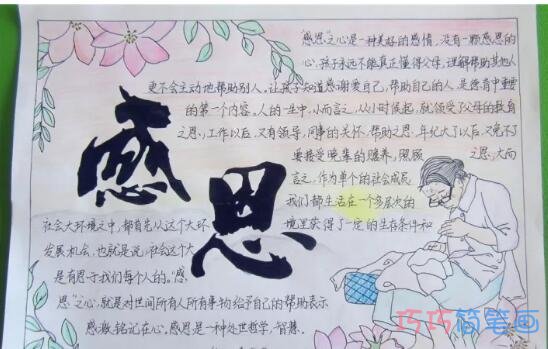 感恩
“感恩”之心是一种美好的感情，没有一颗感恩的
心，孩子永远不能真正懂得孝父母，理解帮助其他人
更不会主动地帮助别人。让孩子知道感谢爱自己，帮助自己的人，是德育中重要
的第一个内容。人的一生中，小而言之，从小时候起，就领受了父母的教育
之恩，工作以后，又有领导，同事的关怀，帮助之恩，年纪大了以后，又免不了
要接受晚辈的赡养，照顾之恩；大而
言之，作为单个的社会成员
我们都生活在一个多层次的
社会大环境之中，都首先从这个大环
境里获得了一定的生存条件和
发展机会，也就是说，社会这个大
是有恩于我们每个人的。“感
恩”之心，就是对世间所有人所有事物给予自己的帮助表示
感激，铭记在心。感恩是一种处世哲学，智慧。
巧巧简笔画